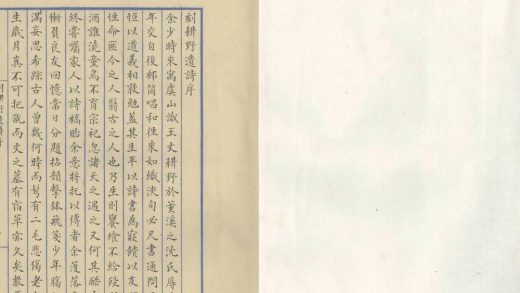 刻耕野遺詩序
余少時來寓虞山識王丈耕野於董溪之沈氏辱
年交自後郵筒唱和往來如織浹旬必尺書通問
恆以道義相敦勉蓋其生平以詩書為寢饋以友
性命匪今之人翳古之人也乃生則饔飧不給歿
酒誰澆童烏不育宗祀忽諸天之遇之又何其酷
終嘗囑家人以詩稿貽余意將托以傳者余濩落
慚負良友回憶當日分題拈韻擊鉢飛箋少年
滿妄思希踪古人曾幾何時而鬢有二毛悲傷老
生歲月真不可把翫而丈之墓有宿草亦久矣數